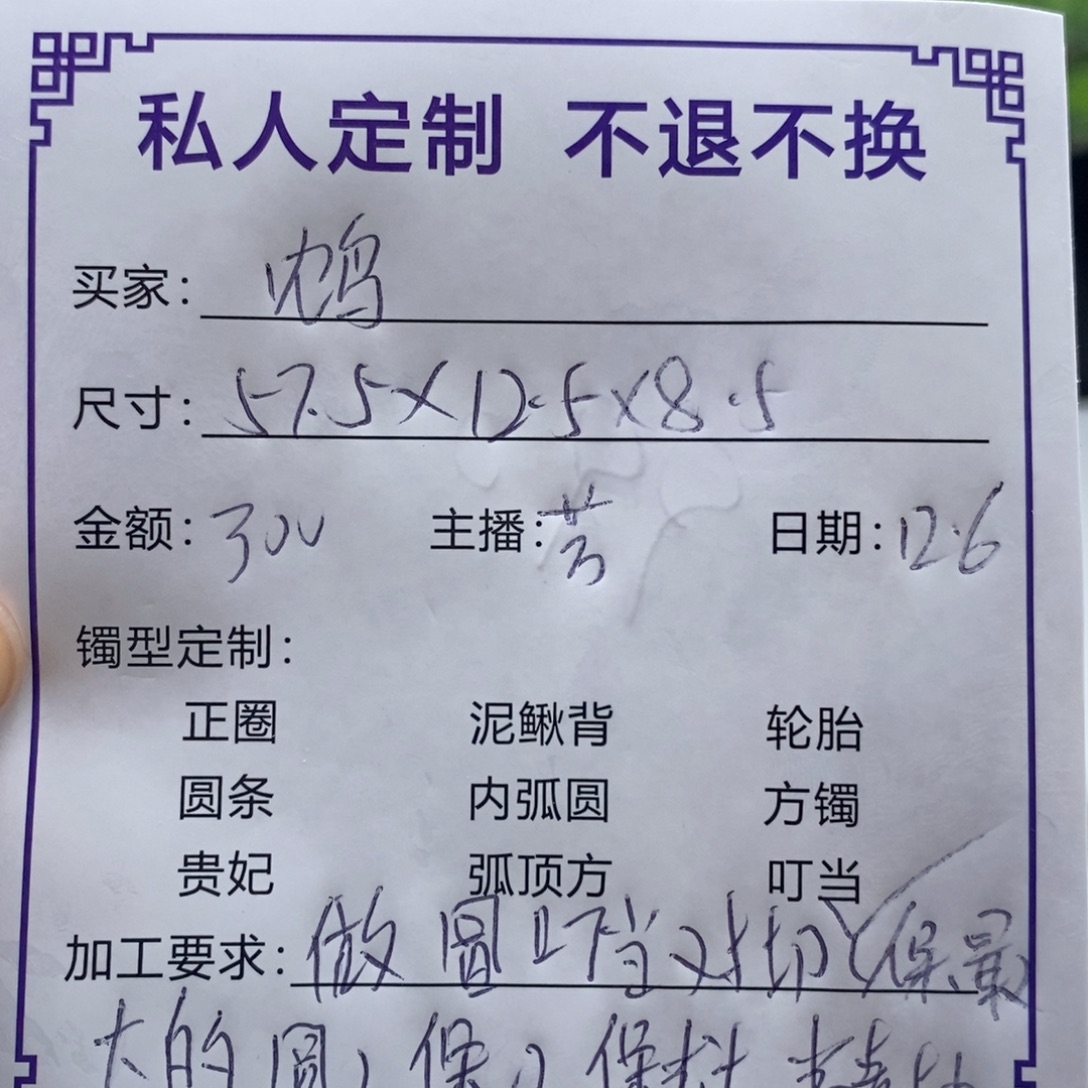 私人定制 不退不换
买家：鸩
尺寸：57.5×12.5×8.5
金额：300 主播：芳 日期：12.6
镯型定制：
正圈 泥鳅背 轮胎
圆条 内弧圆 方镯
贵妃 弧顶方 叮当
加工要求：做圆叮当对切（保最
大的圆，保